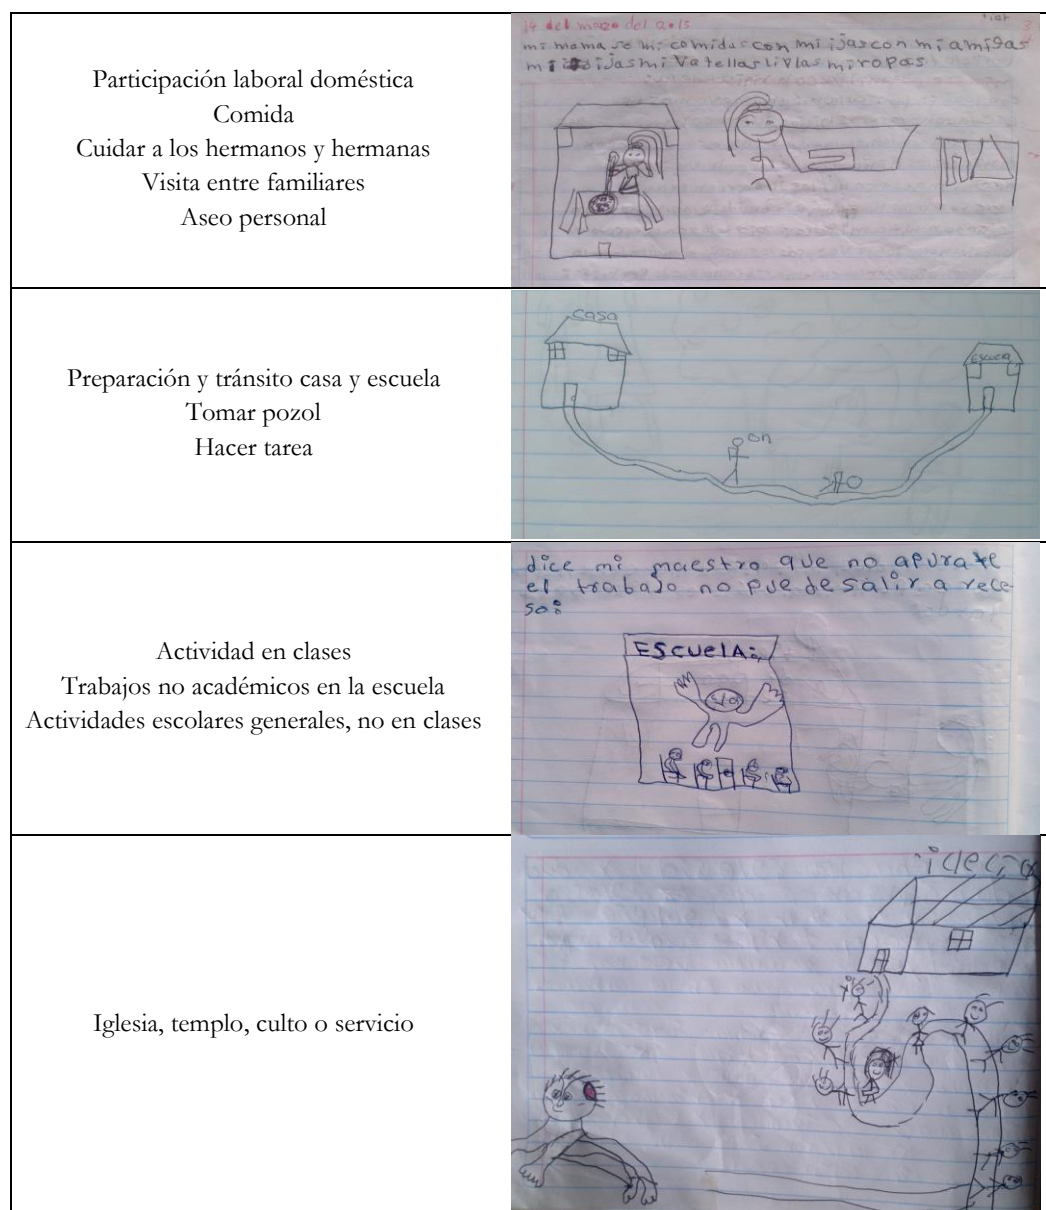 Participación laboral doméstica
Comida
Cuidar a los hermanos y hermanas
Visita entre familiares
Aseo personal
14 del marzo del 2015
mi mama se mi comidas con mi ijas con mi amigas
mi ijas mi
mi ropas
Preparación y tránsito casa y escuela
Tomar pozol
Hacer tarea
casa
Actividad en clases
Trabajos no académicos en la escuela
Actividades escolares generales, no en clases
dice mi maestro que no apurate
el trabajo no puede salir a rece
so:
EScuelA:
Iglesia, templo, culto o servicio